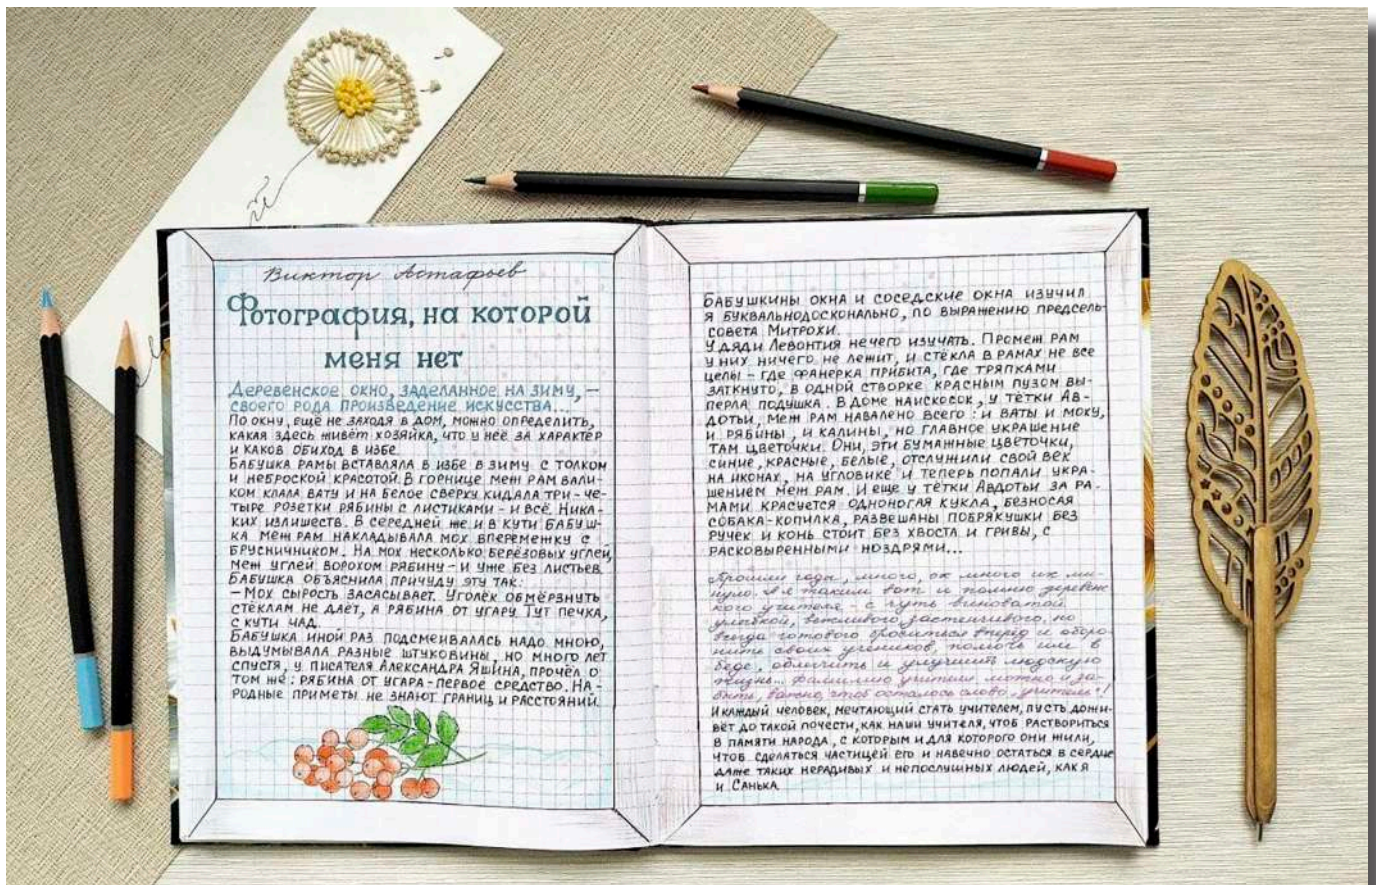 Виктор Астафьев
Фотография, на которой
меня нет
Деревенское окно, заделанное на зиму, –
своего рода произведение искусства...
По окну, ещё не заходя в дом, можно определить,
какая здесь живёт хозяйка, что у неё за характер
и каков обиход в избе.
Бабушка рамы вставляла в избе в зиму с толком
и неброской красотой. В горнице меж рам вали-
ком клала вату и на белое сверху кидала три-че-
тыре розетки рябины с листиками – и всё. Ника-
ких излишеств. В середней же и в кути бабуш-
ка меж рам накладывала мох вперемежку с
брусничником. На мох несколько берёзовых углей,
меж углей ворохом рябину – и уже без листьев.
Бабушка объяснила причуду эту так:
– Мох сырость засасывает. Уголёк обмёрзнуть
стёклам не даёт, а рябина от угару. Тут печка,
с кути чад.
Бабушка иной раз подсмеивалась надо мною,
выдумывала разные штуковины, но много лет
спустя, у писателя Александра Яшина, прочёл о
том же: рябина от угара – первое средство. На-
родные приметы не знают границ и расстояний.
Бабушкины окна и соседские окна изучил
я буквальнодосконально, по выражению предсель-
совета Митрохи.
У дяди Левонтия нечего изучать. Промеж рам
у них ничего не лежит, и стёкла в рамах не все
целы – где фанерка прибита, где тряпками
заткнуто, в одной створке красным пузом вы-
перла подушка. В доме наискосок, у тётки Ав-
дотьи, меж рам навалено всего: и ваты и моху,
и рябины, и калины, но главное украшение
там цветочки. Они, эти бумажные цветочки,
синие, красные, белые, отслужили свой век
на иконах, на угловике и теперь попали укра-
шением меж рам. И еще у тётки Авдотьи за ра-
мами красуется одноногая кукла, безносая
собака-копилка, развешаны побрякушки без
ручек и конь стоит без хвоста и гривы, с
расковыренными ноздрями...
Прошли годы, много, ох много их ми-
нуло. А я таким вот и помню деревенс
кого учителя – с чуть виноватой
улыбкой, вежливого, застенчивого, но
всегда готового броситься вперёд и оборо-
нить своих учеников, помочь им в
беде, облегчить и улучшить людскую
жизнь... Фамилию учителя можно и за-
быть, важно, чтоб осталось слово „учитель"!
И каждый человек, мечтающий стать учителем, пусть дожи-
вёт до такой почести, как наши учителя, чтоб раствориться
в памяти народа, с которым и для которого они жили,
чтоб сделаться частицей его и навечно остаться в сердце
даже таких нерадивых и непослушных людей, как я
и Санька.